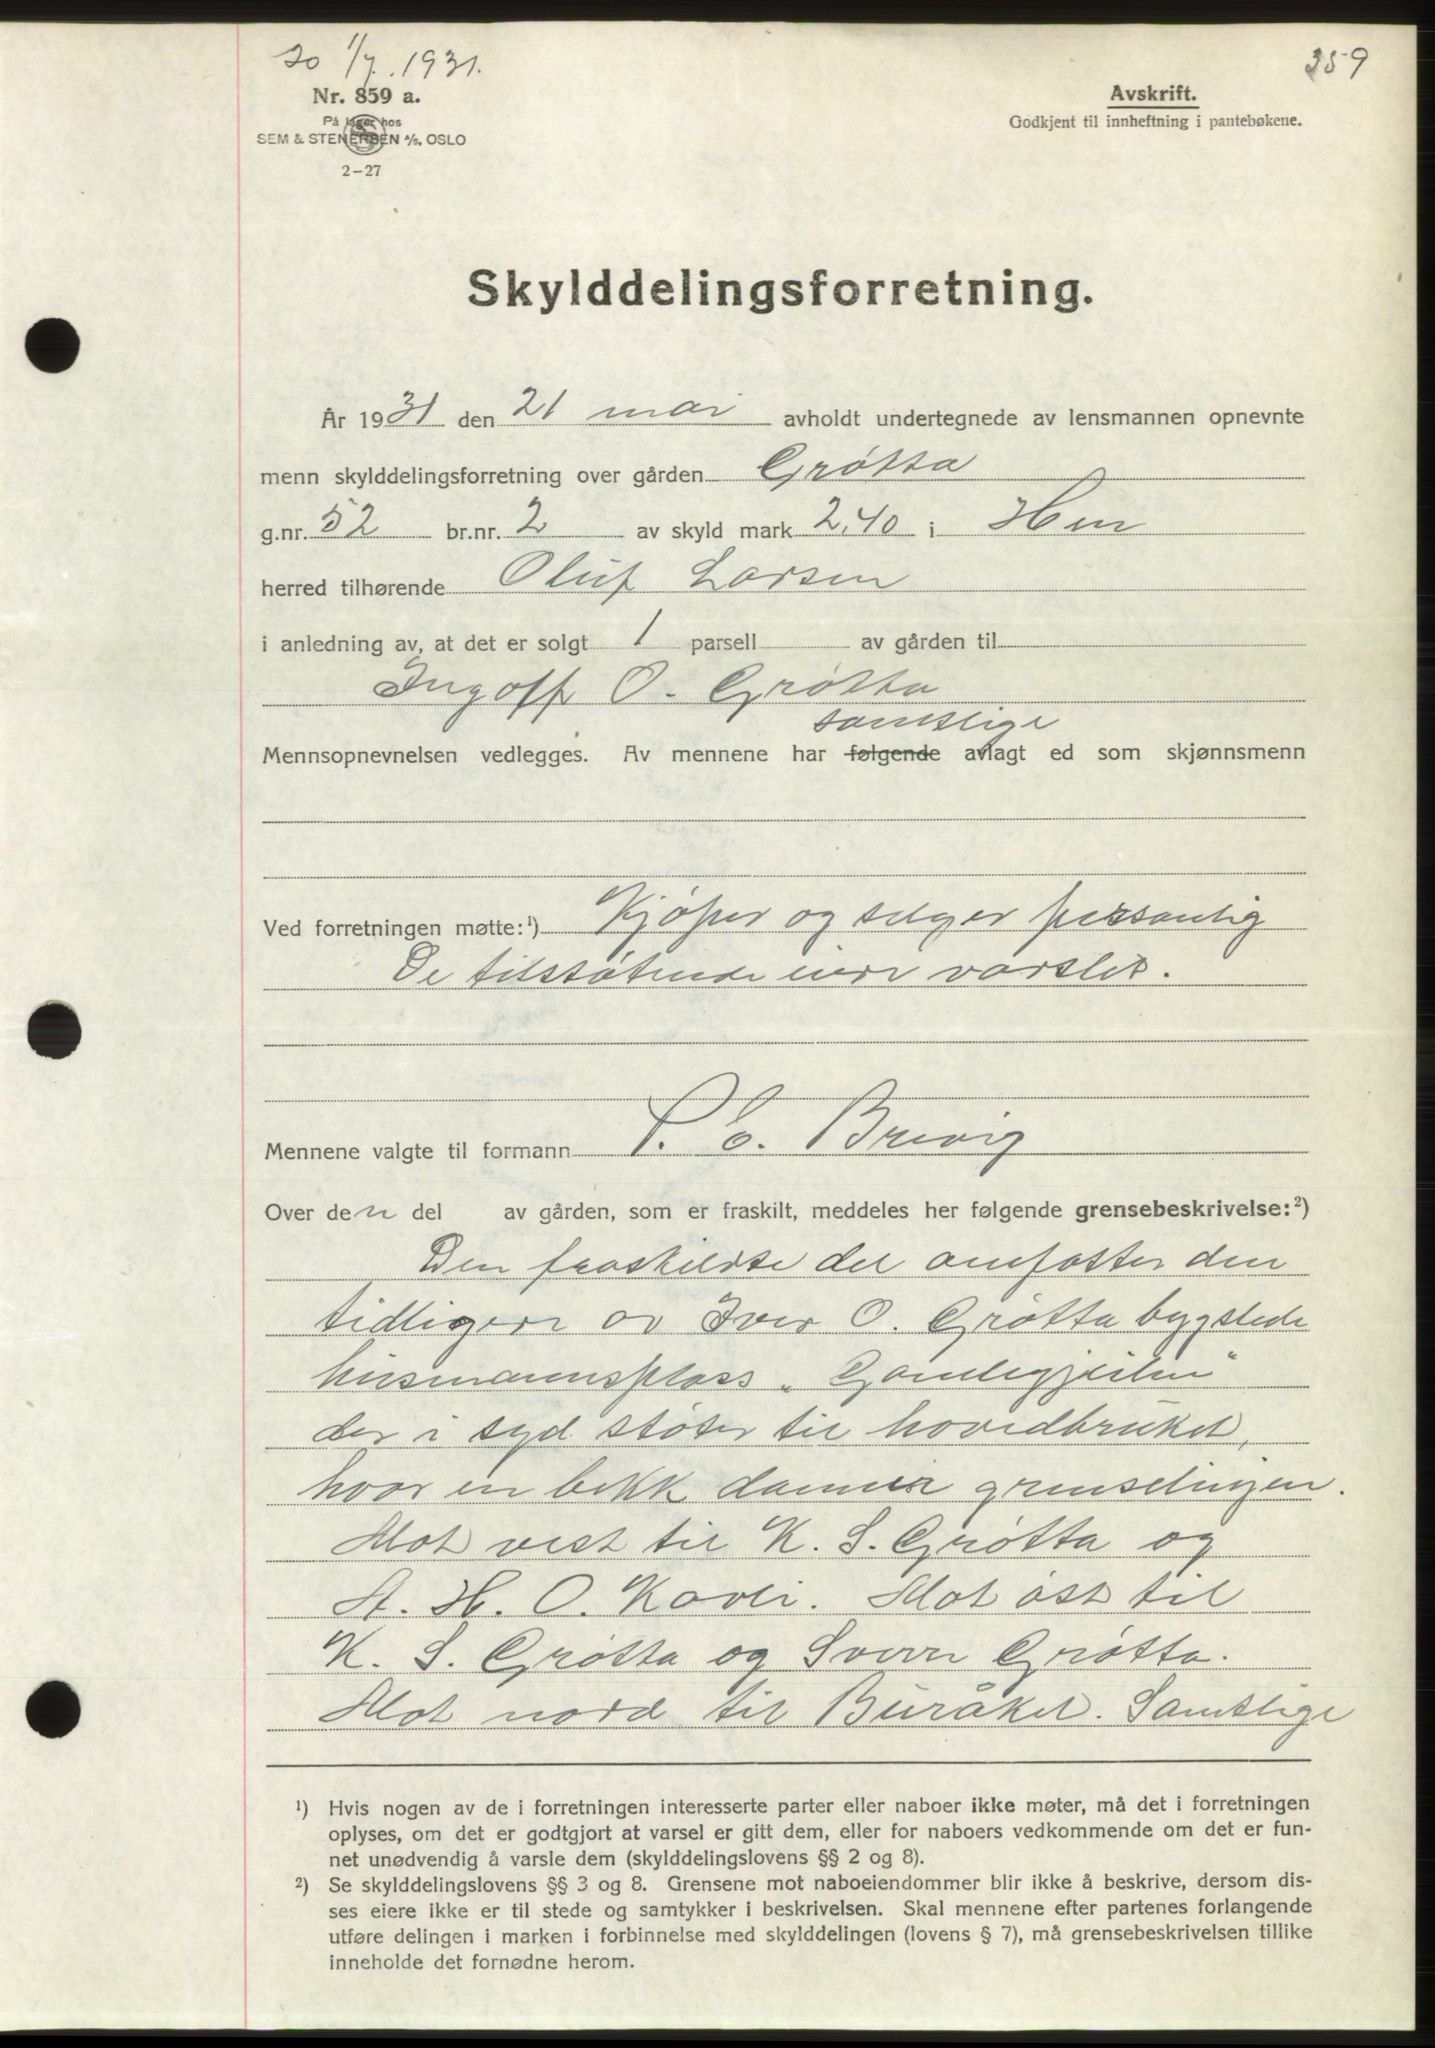 20 1/7. 1931.
359
Nr. 859 a.
På lager hos
SEM & STENERSEN A/S, OSLO
2-27
Avskrift.
Godkjent til innheftning i pantebøkene.
Skylddelingsforretning.
År 1931 den 21 mai avholdt undertegnede av lensmannen opnevnte
menn skylddelingsforretning over gården Grøtta
g.nr. 52 br.nr. 2 av skyld mark 2,40 i Hen
herred tilhørende Oluf Larsen
i anledning av, at det er solgt 1 parsell av gården til
Ingolf O. Grøtta
samtlige
Mennsopnevnelsen vedlegges. Av mennene har følgende avlagt ed som skjønnsmenn
Ved forretningen møtte:¹) Kjøper og selger personlig
De tilstøtende eiere varslet.
Mennene valgte til formann P. O. Brevig
Over den del av gården, som er fraskilt, meddeles her følgende grensebeskrivelse:²)
Den fraskildte del omfatter den
tidligere av Iver O. Grøtta bygslede
husmannsplass "Gamlegjeilen"
der i syd støter til hovedbruket,
hvor en bekk danner grenselinjen.
Mot vest til K. S. Grøtta og
A. H. O. Kavli. Mot øst til
K. S. Grøtta og Sverre Grøtta.
Mot nord til Buråket. Samtlige
¹) Hvis nogen av de i forretningen interesserte parter eller naboer ikke møter, må det i forretningen
oplyses, om det er godtgjort at varsel er gitt dem, eller for naboers vedkommende om det er fun-
net unødvendig å varsle dem (skylddelingslovens §§ 2 og 8).
²) Se skylddelingslovens §§ 3 og 8. Grensene mot naboeiendommer blir ikke å beskrive, dersom dis-
ses eiere ikke er til stede og samtykker i beskrivelsen. Skal mennene efter partenes forlangende
utføre delingen i marken i forbinnelse med skylddelingen (lovens § 7), må grensebeskrivelsen tillike
inneholde det fornødne herom.